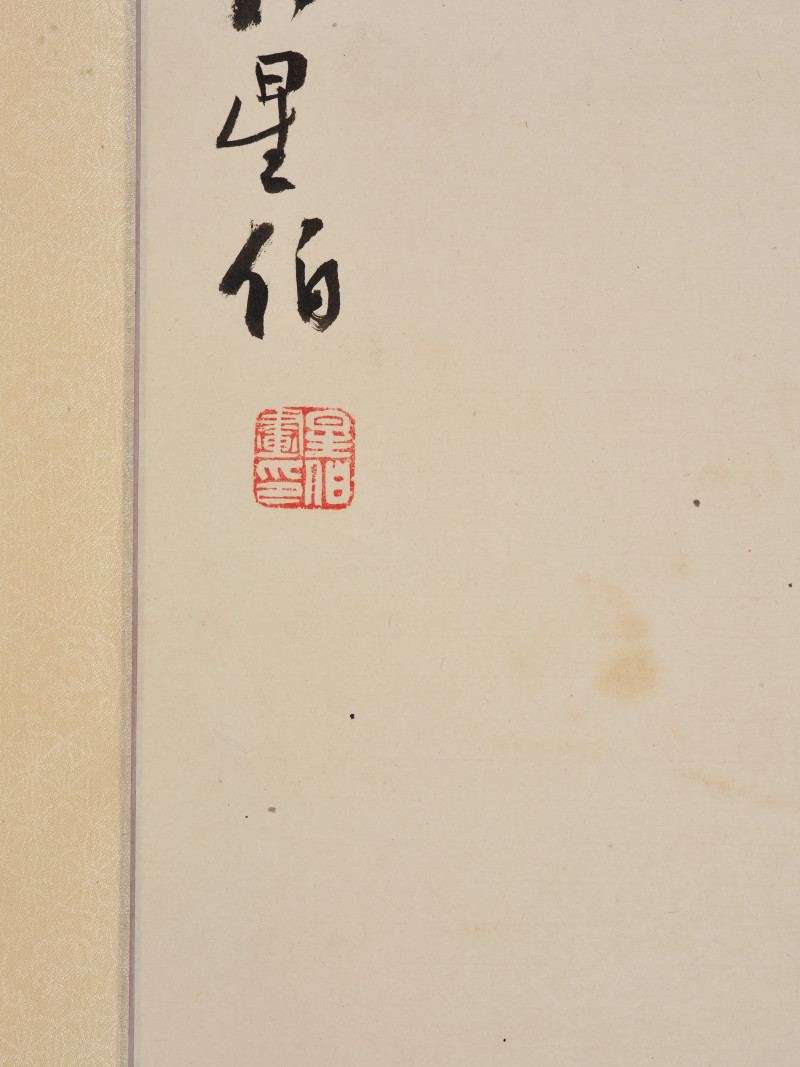 星伯
星伯
畫印